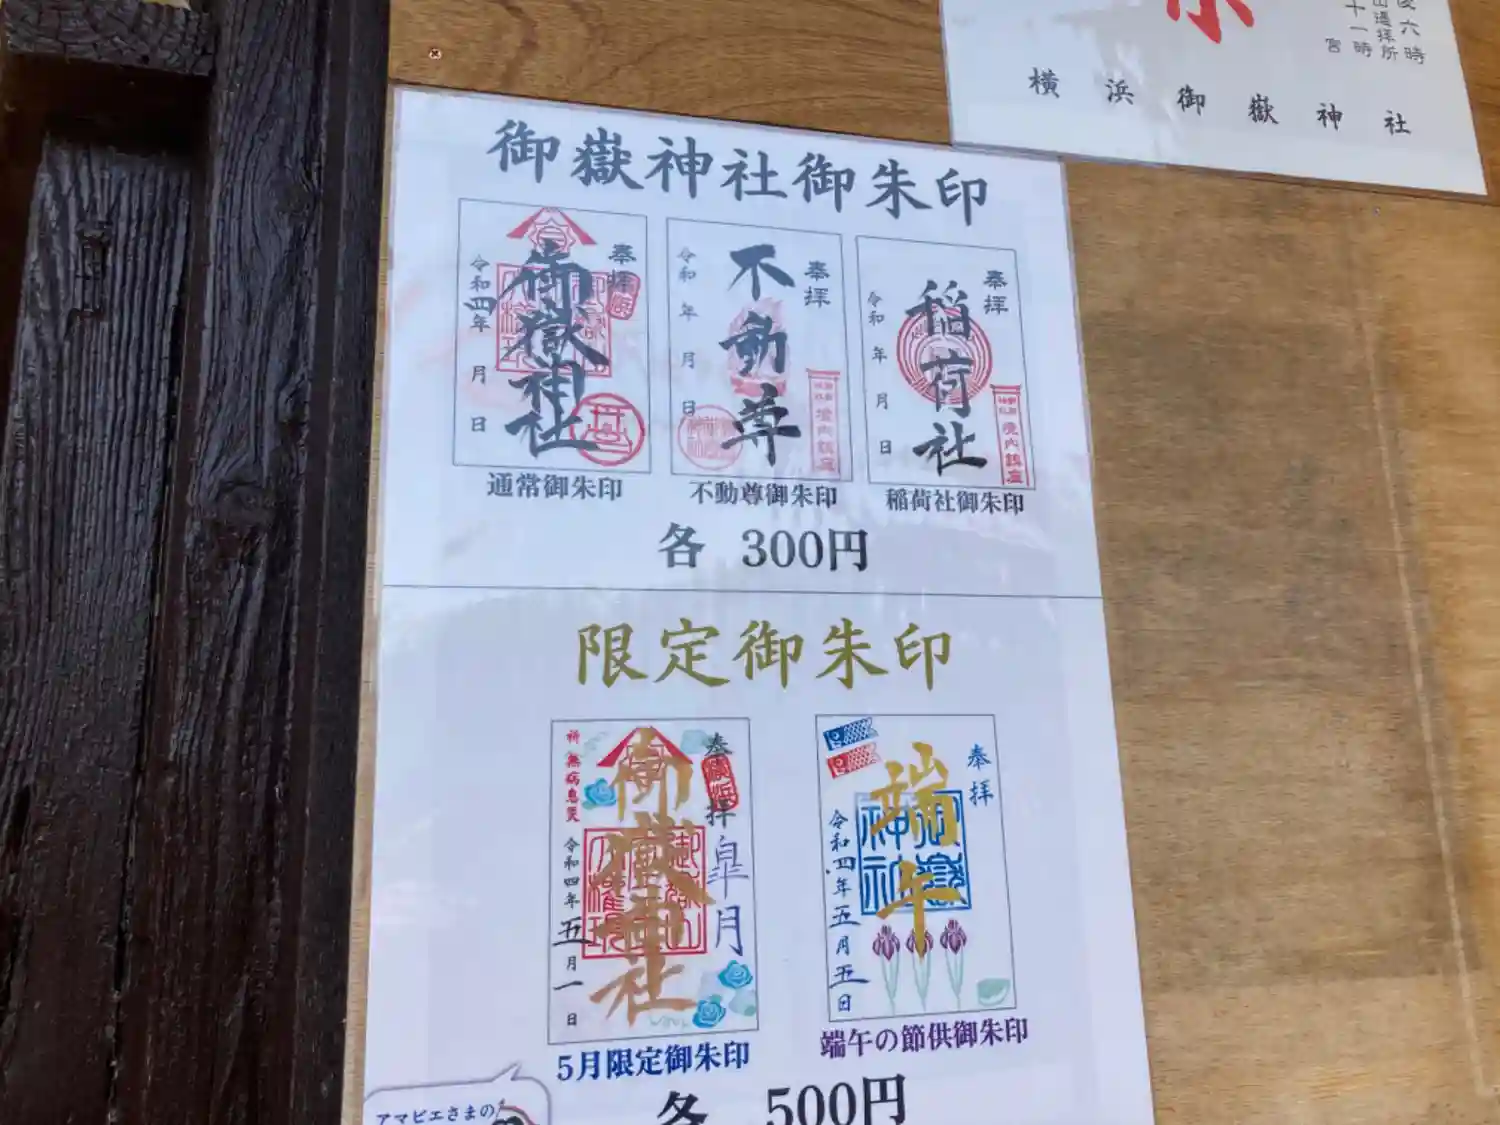 横浜御嶽神社
御嶽神社御朱印
奉拝
御嶽神社
令和四年 月 日
奉拝
不動尊
令和 年 月 日
奉拝
稲荷社
令和 年 月 日
通常御朱印
不動尊御朱印
稲荷社御朱印
各 300円
限定御朱印
奉拝
皐月
御嶽神社
祈 無病息災
令和四年五月一日
奉拝
端午
令和四年五月五日
5月限定御朱印
端午の節供御朱印
各 500円
アマビエさまの